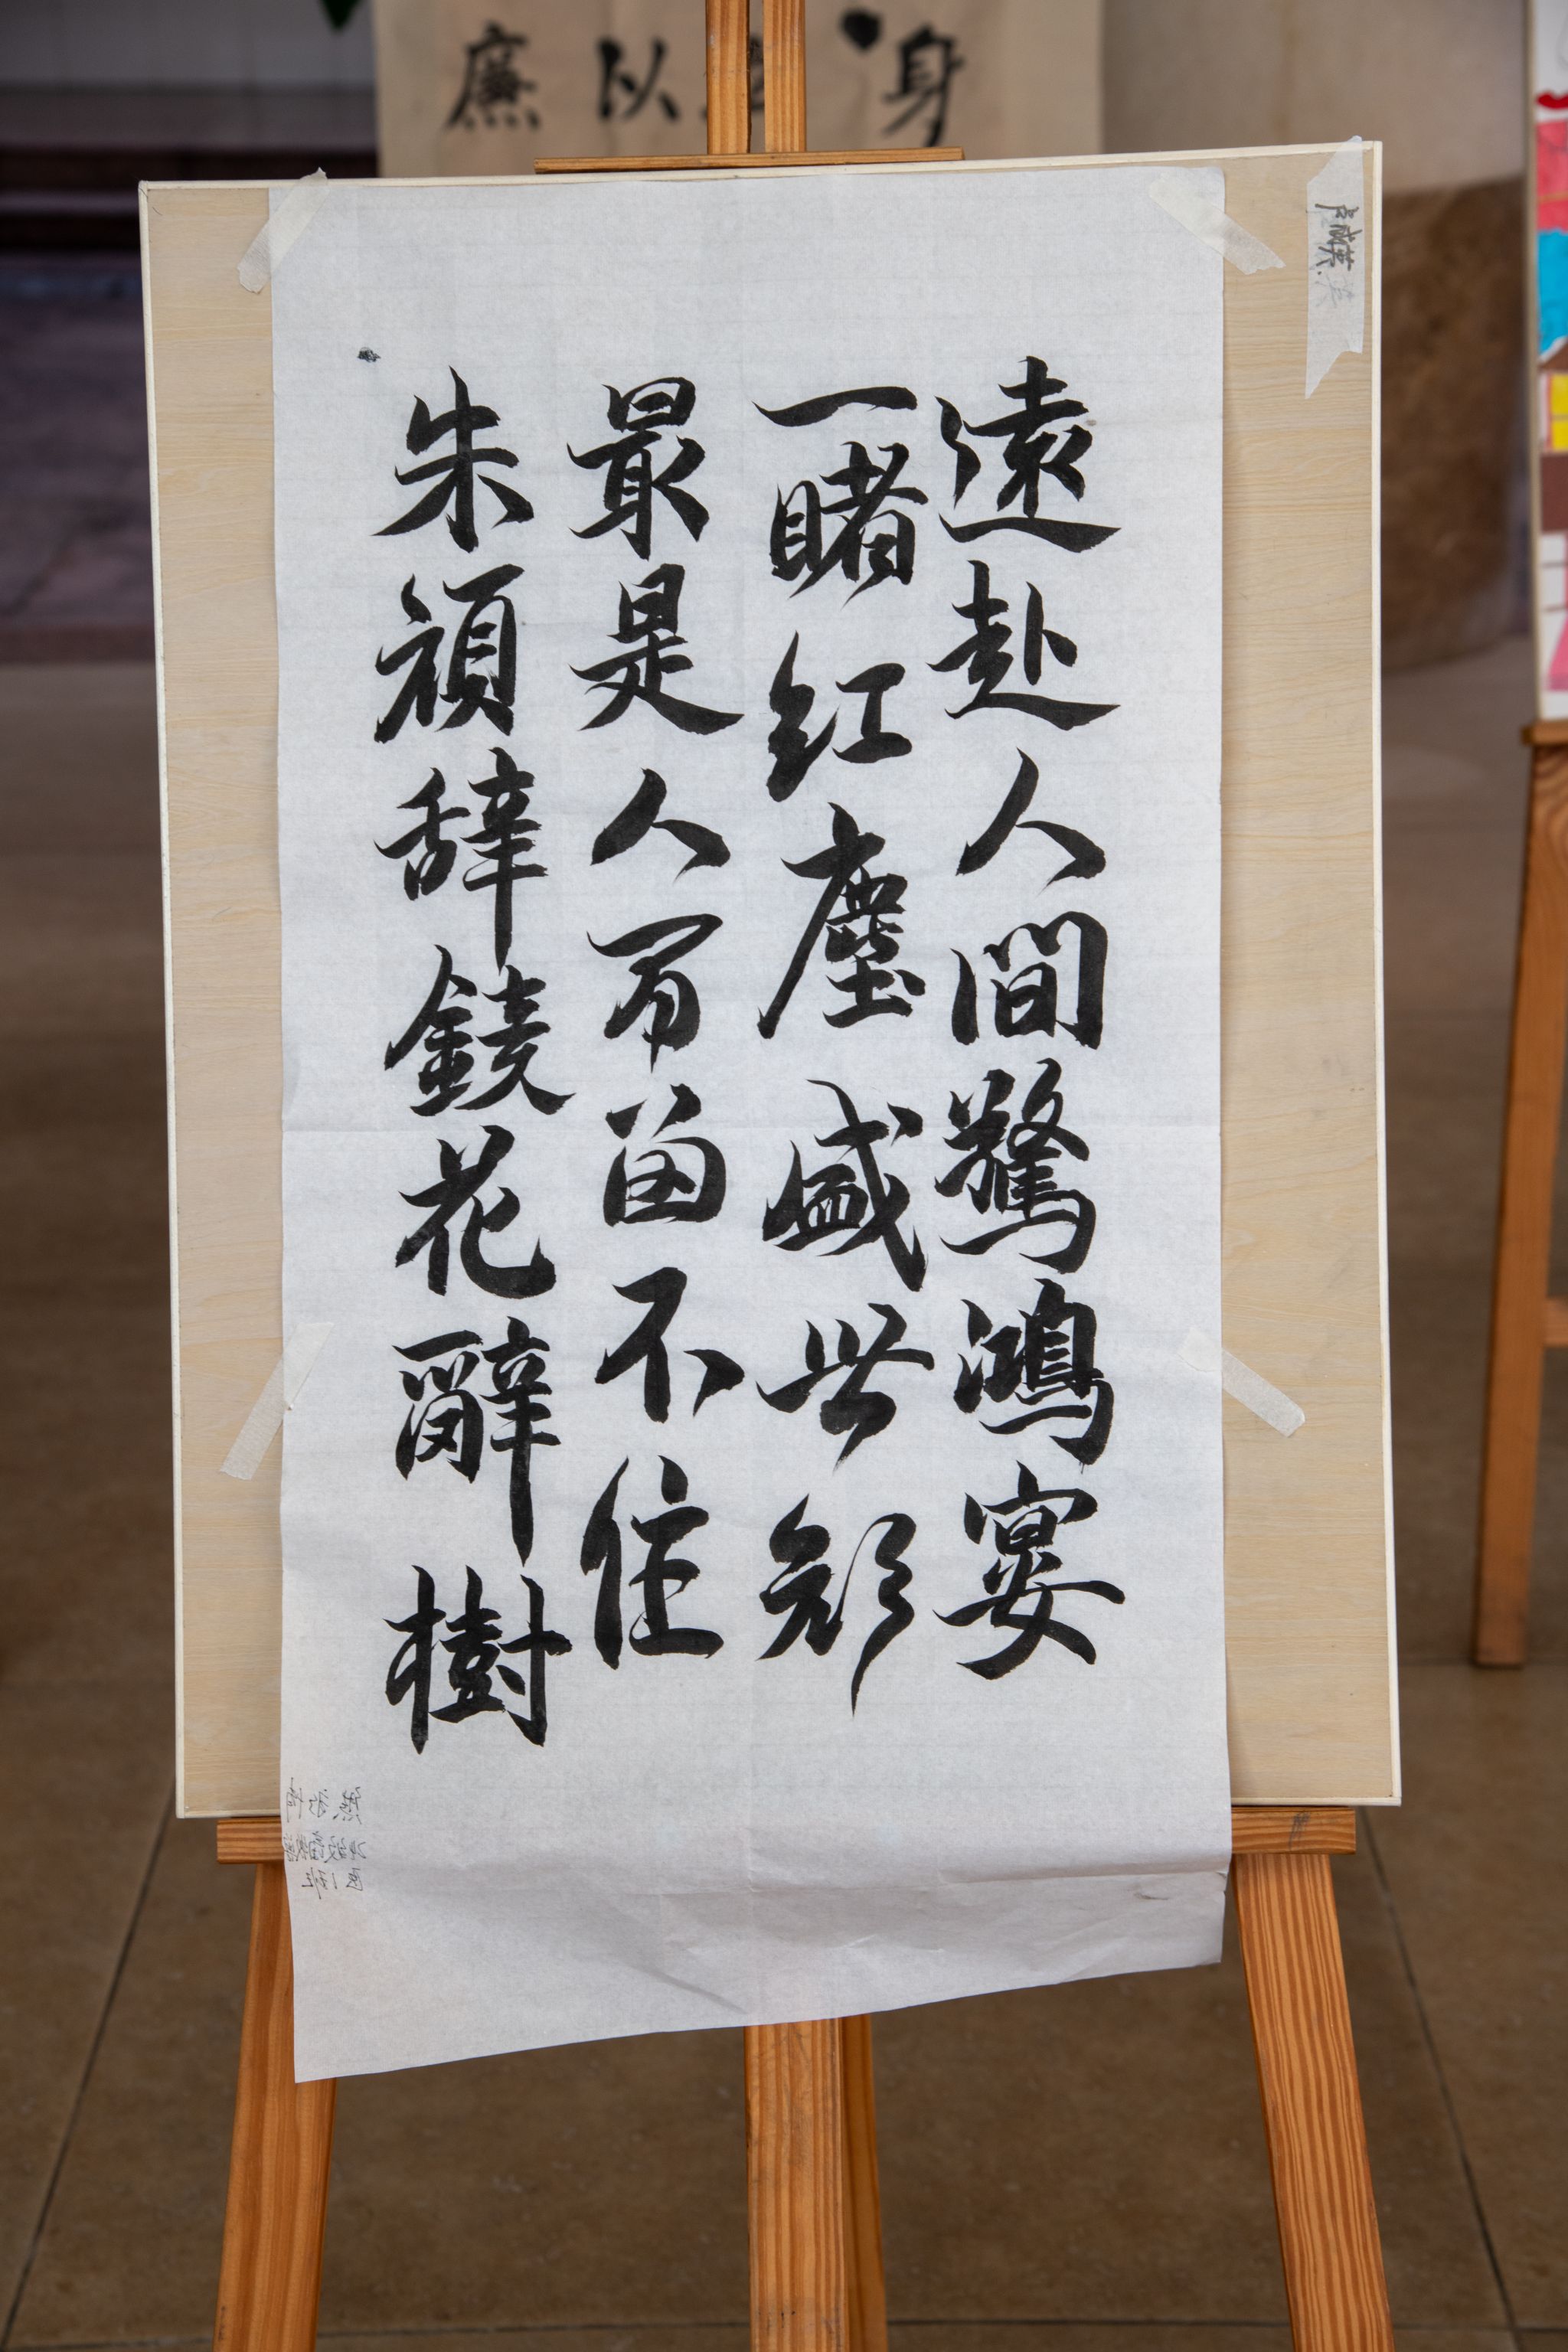 廉以 身
遠赴人間驚鴻宴
一睹红塵盛世颜
最是人间留不住
朱颜辞鏡花辭樹